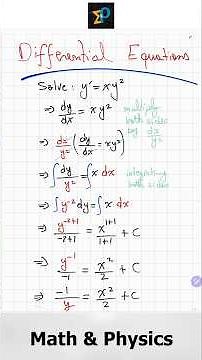 Σp
Differential Equations
Solve : y' = xy²
⇒ dy/dx = xy² multiply both sides by dx/y²
⇒ dx/y² (dy/dx = xy²)
⇒ ∫ dy/y² = ∫ x dx integrating both sides
⇒ ∫ y⁻² dy = ∫ x dx
⇒ y⁻²⁺¹/-2+1 = x¹⁺¹/1+1 + C
⇒ y⁻¹/-1 = x²/2 + C
⇒ -1/y = x²/2 + C
Math & Physics